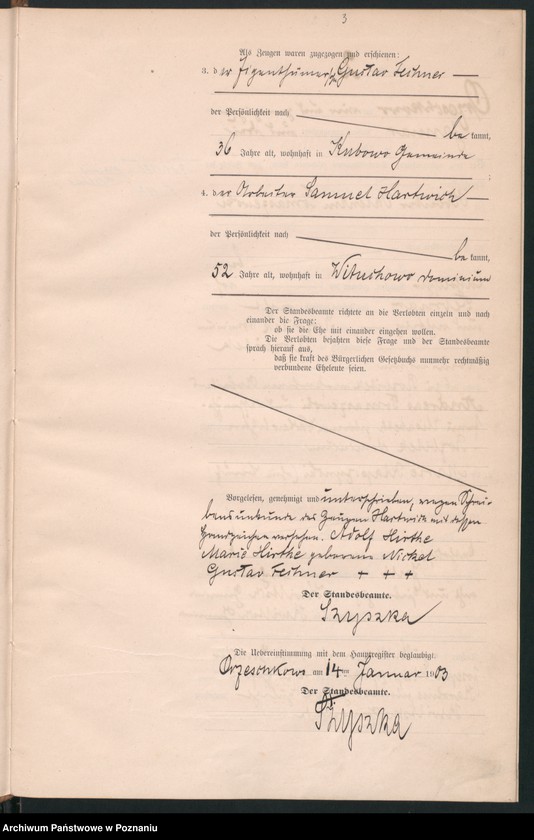 3
Als Zeugen waren zugezogen und erschienen:
3. der Eigenthümer Gustav Feihner
der Persönlichkeit nach
bekannt,
36 Jahre alt, wohnhaft in Kubowo Gemeinde
4. der Arbeiter Samuel Hartwich
der Persönlichkeit nach
bekannt,
52 Jahre alt, wohnhaft in Wituchowo Dominium
Der Standesbeamte richtete an die Verlobten einzeln und nach
einander die Frage:
ob sie die Ehe mit einander eingehen wollen.
Die Verlobten bejahten diese Frage und der Standesbeamte
sprach hierauf aus,
daß sie kraft des Bürgerlichen Gesetzbuchs nunmehr rechtmäßig
verbundene Eheleute seien.
Vorgelesen, genehmigt und unterschrieben, wegen Schrei-
bensunkunde des Zeugen Hartwich mit dessen
Handzeichen versehen. Adolf Hirthe
Marie Hirthe geborene Nickel
Gustav Feihner + + +
Der Standesbeamte.
Szyszka
Die Uebereinstimmung mit dem Hauptregister beglaubigt.
am 14 ten Januar 1903
Der Standesbeamte.
Szyszka
Archiwum Państwowe w Poznaniu